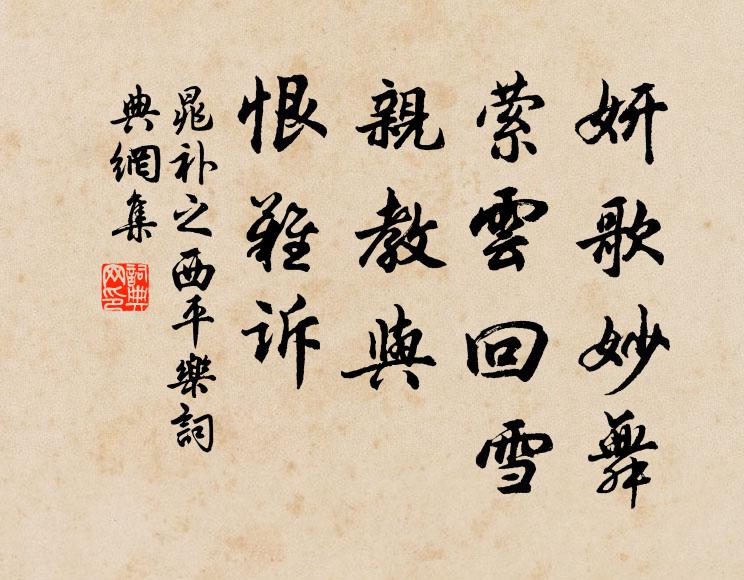 妍歌妙舞
萦雲回雪
親教與
恨難訴
晁补之西平樂詞
典網集
詞典网印